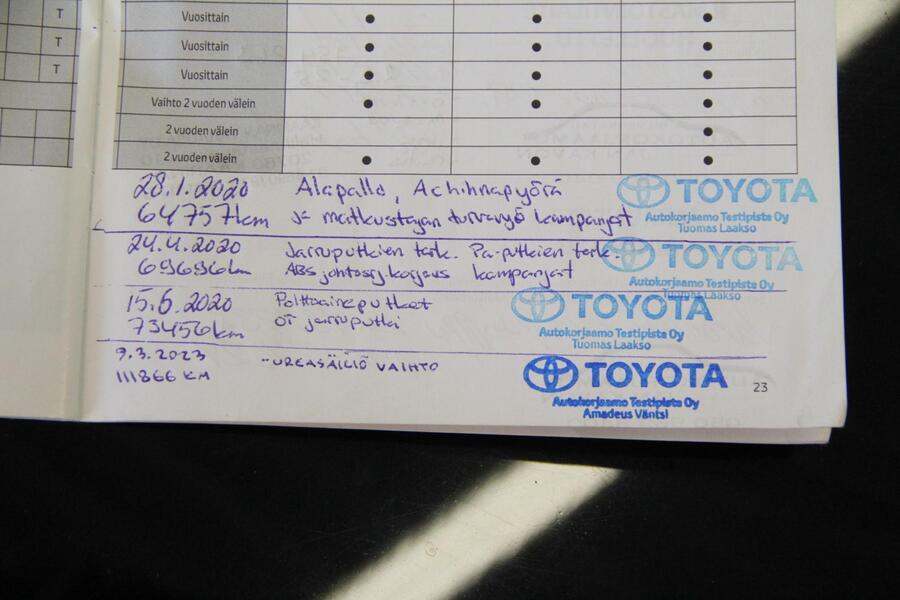 T
T
T
Vuosittain
Vuosittain
Vuosittain
Vaihto 2 vuoden välein
2 vuoden välein
2 vuoden välein
28.1.2020 Alapallo, A chihnapyörä
64757km ja matkustajan turvavyö kampanjat
TOYOTA
Autokorjaamo Testipiste Oy
Tuomas Laakso
24.4.2020 Jarruputkien tark. Pa-putkien tark.
69696km ABS johtosrj. korjaus kampanjat
TOYOTA
Autokorjaamo Testipiste Oy
Tuomas Laakso
15.6.2020 Polttoaineputket
73456km OT jarruputki
TOYOTA
Autokorjaamo Testipiste Oy
Tuomas Laakso
9.3.2023 -UREASÄILIÖ VAIHTO
111866 KM
TOYOTA
Autokorjaamo Testipiste Oy
Amadeus Väntsi
23